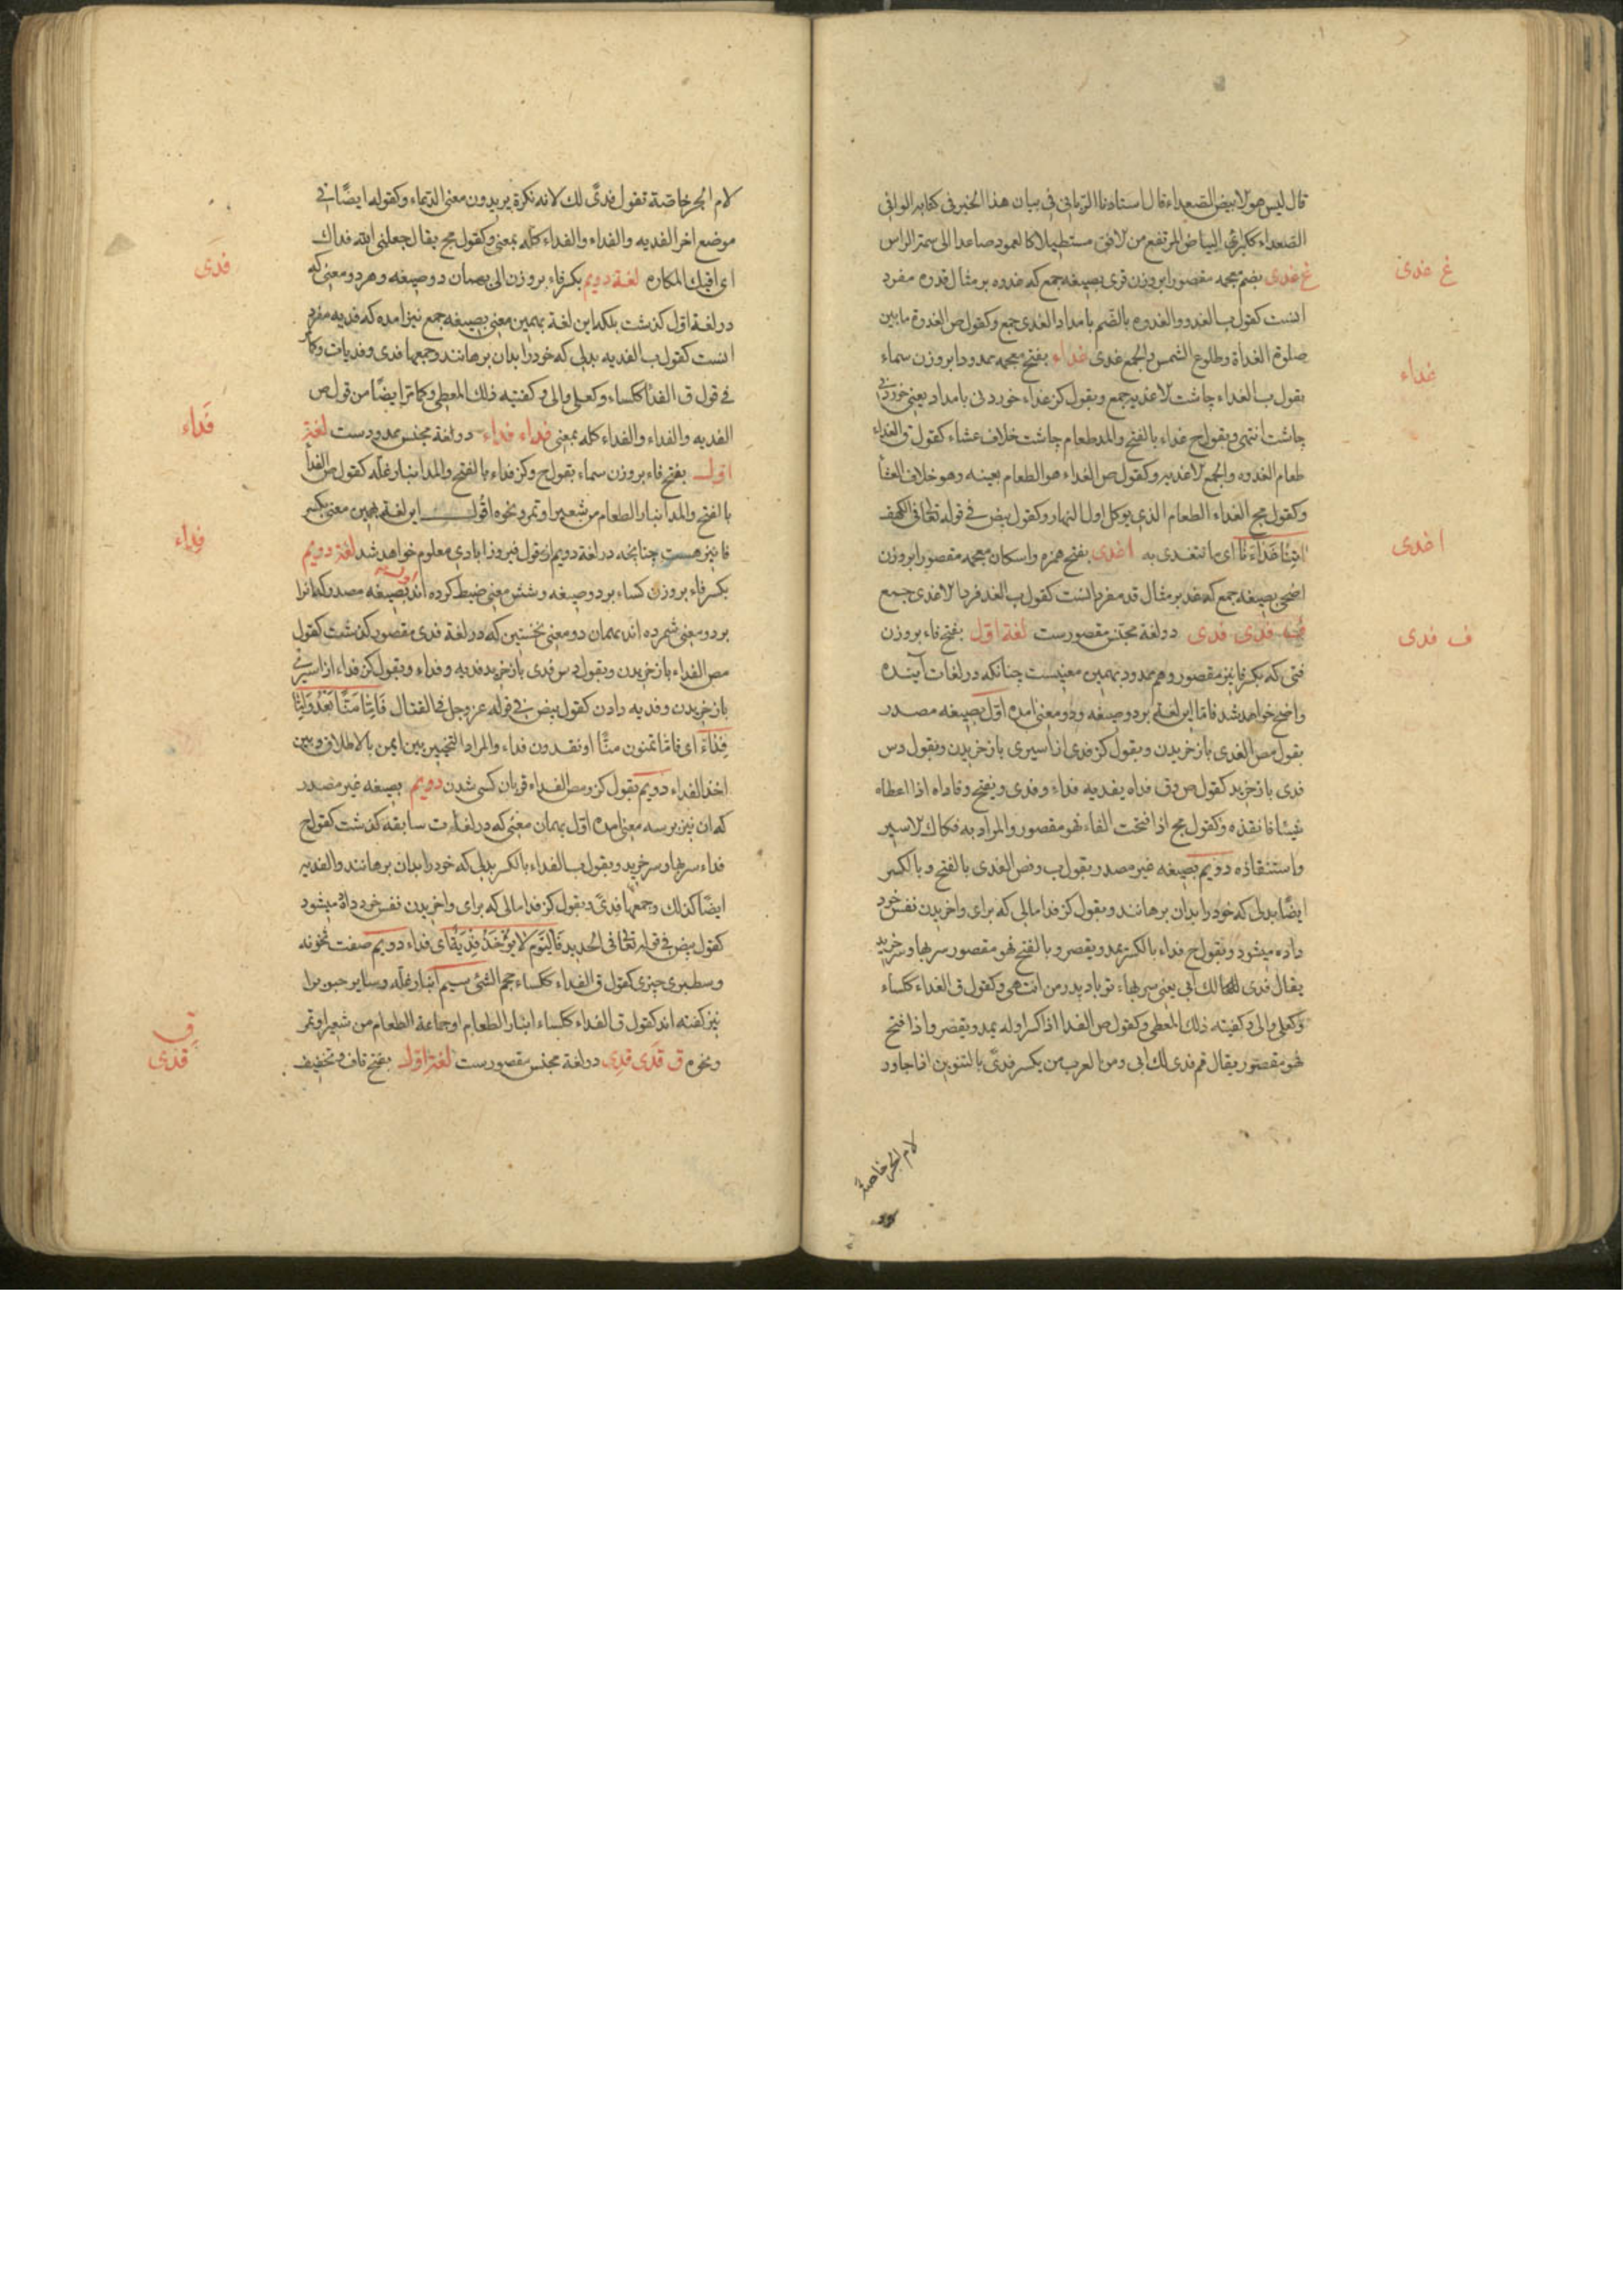 قال ليس هو الابيض الصعداء قال استادنا الربانى فى بيان هذا الخبر فى كتابه الوافى
الصعداء ككبراء البياض المرتفع من الافق مستطيلا كالعمود صاعدا الى سمت الراس
غ غدى بضم معجمه مقصورا بروزن قرى بصيغه جمع كه غدوه بر مثال قدوه مفرد
انست كقول ب الغدو والغدوه بالضم بامداد الغدى جمع وكقول ص الغدوة ما بين
صلوة الغداة وطلوع الشمس والجمع غدى غداء بفتح معجمه ممدودا بروزن سماء
بقول ب الغداء چاشت الاغذيه جمع وبقول كز غداء خوردنى بامداد يعنى خوردنى
چاشت انتهى وبقول ح غداء بالفتح والمد طعام چاشت خلاف عشاء كقول ق الغداء
طعام الغدوه والجمع الاغديه وكقول ص الغداء هو الطعام بعينه وهو خلاف العشا
وكقول مج الغداء الطعام الذى يوكل اول النهار وكقول بيض فى قوله تعالى فى الكهف
اتِنا غَداءَنا اى ما نتغدى به اغدى بفتح همزه واسكان معجمه مقصورا بروزن
اضحى بصيغه جمع كه غد بر مثال قد مفرد انست كقول ب الغد فردا الاغدى جمع
ف فدى فدى دو لغة مجنس مقصورست لغة اول بفتح فاء بروزن
فتى كه بكسر فا نيز مقصور وهم ممدود بهمين معنيست چنانكه در لغات آينده
واضح خواهد شد فاما اين لغة بر دو صيغه ودو معنى امده اول بصيغه مصدر
بقول مص الفدى باز خريدن وبقول كز فدى از اسيرى باز خريدن وبقول دس
فدى باز خريد كقول ص وق فداه يفديه فداء وفدى ويفتح وفاداه اذا اعطاه
شيئا فانقذه وكقول مج اذا فتحت الفاء فهو مقصور والمراد به فكاك الاسير
واستنقاذه دويم بصيغه غير مصدر بقول ب وض الفدى بالفتح وبالكسر
ايضا بدلى كه خود را بدان برهانند وبقول كز فدا مالى كه براى واخريدن نفس خود
داده ميشود وبقول ح فداء بالكسر يمد ويقصر وبالفتح فهو مقصور سربها وسرخريد
يقال فدى لك ابى يعنى سربهاء تو باد پدر من انتهى وكقول ق الفداء ككساء
وكعلى والى وكفيته ذلك المعطى وكقول ص الفدا اذا كسر اوله يمد ويقصر واذا فتح
فهو مقصور يقال قم فدى لك ابى ومن العرب من يكسر فدى بالتنوين اذا جاور
لام الجر خاصة
غ غدى
غداء
اغدى
ف فدى
لام الجر خاصة تقول فدى لك لانه نكرة يريدون معنى الدعاء وكقوله ايضا فى
موضع اخر الفديه والفداء والفداء كله بمعنى وكقول مج يقال جعلنى الله فداك
اى اقيك المكاره لغة دويم بكسر فاء بروزن الى بهمان دو صيغه وهر دو معنى كه
در لغة اول گذشت بلكه اين لغة بهمين معنى بصيغه جمع نيز امده كه فديه مفرد
انست كقول ب الفديه بدلى كه خود را بدان برهانند وجمعها فدى وفديات وكما
فى قول ق الفدا ككساء وكعلى والى وكفتيه ذلك المعطى وكما مر ايضا من قول ص
الفديه والفداء والفداء كله بمعنى فداء فداء دو لغة مجنس ممدودست لغة
اول بفتح فاء بروزن سماء بقول ح وكز فداء بالفتح والمد انبار غله كقول ص الفدا
بالفتح والمد انبار الطعام من شعير او تمر ونحوه اقول اين لغة بهمين معنى بكسر
فا نيز هست چنانچه در لغة دويم از قول فيروزابادى معلوم خواهد شد لغة دويم
بكسر فاء بروزن كساء بر دو صيغه وشش معنى ضبط كرده اند اول بصيغه مصدر كه انرا
بر دو معنى شمرده اند بهمان دو معنى نخستين كه در لغة فدى مقصور گذشت كقول
مص الفداء باز خريدن وبقول دس فدى باز خريد فديه وفداء وبقول كز فداء از اسيرى
باز خريدن وفديه دادن كقول بيض فى قوله عز وجل فى القتال فَاِمّا مَنّاً بَعْدُ وَاِمّا
فِداءً اى فاما تمنون منّا او تفدون فداء والمراد التخيير بين المن بالاطلاق وبين
اخذ الفداء دويم بقول كز ومص الفداء قربان كسى شدن دويم بصيغه غير مصدر
كه ان نيز بر سه معنى امده اول بهمان معنى كه در لغات سابقه گذشت كقول ح
فداء سربها وسرخريد وبقول ب الفداء بالكسر بدلى كه خود را بدان برهانند والفديه
ايضا كذلك وجمعها فدى وبقول كز فدا مالى كه براى واخريدن نفس خود داده ميشود
كقول بيض فى قوله تعالى فى الحديد فَالْيَوْمَ لا يُؤْخَذُ فِدْيَةٌ اى فداء دويم صفت نحونه
وسطبرى چيزى كقول ق الفداء ككساء حجم الشئ سيم انبار غله وساير حبوب را
نيز گفته اند كقول ق الفداء ككساء انبار الطعام او جماعة الطعام من شعير او تمر
ونحوه ق قدى قدى دو لغة مجنس مقصورست لغة اول بفتح قاف وتخفيف
فدى
فداء
فداء
ق
قدى